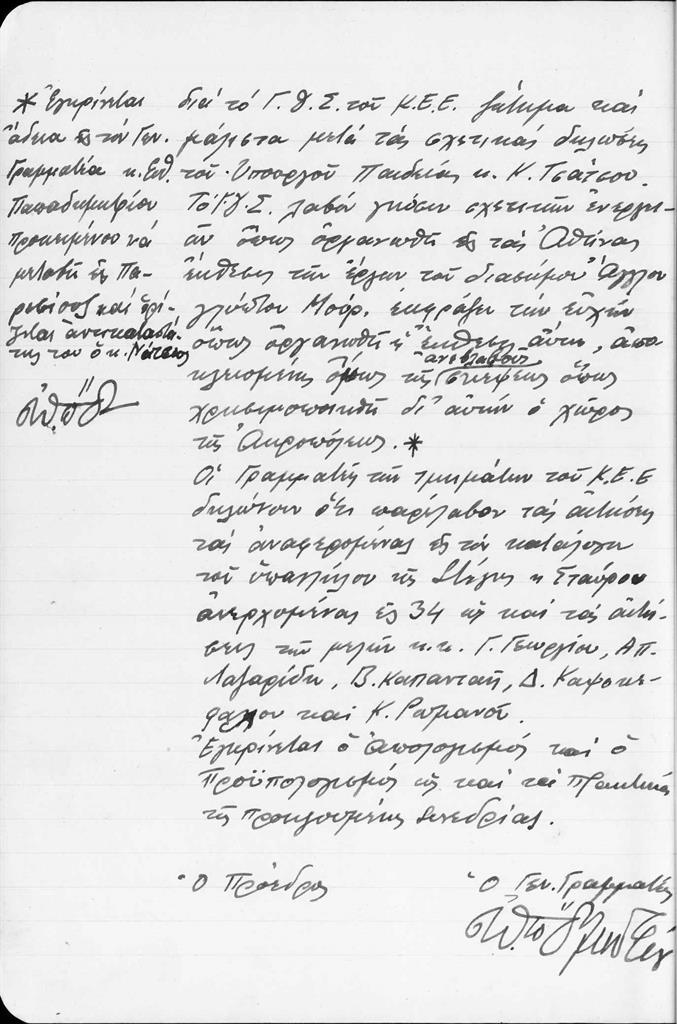 * Ἐγκρίνεται
ἄδεια εἰς τόν Γεν.
Γραμματέα κ. Εὐθ.
Παπαδημητρίου
προκειμένου νά
μεταβῇ εἰς Πα-
ρισίους καί ὁρί-
ζεται ἀντικαταστά-
της του ὁ κ.
διά τό Γ.Δ.Σ. τοῦ Κ.Ε.Ε. ζήτημα καί
μάλιστα μετά τάς σχετικάς δηλώσεις
τοῦ Ὑπουργοῦ Παιδείας κ. Κ. Τσάτσου.
Τό Γ.Δ.Σ. λαβόν γνῶσιν σχετικῶν ἐνεργει-
ῶν ὅπως ὀργανωθῇ εἰς τάς Ἀθήνας
ἔκθεσις τῶν ἔργων τοῦ διασήμου Ἄγγλου
γλύπτου Μούρ, ἐκφράζει τήν εὐχήν
ὅπως ὀργανωθῇ ἡ ἔκθεσις αὕτη, ἀπο
κλειομένης ὅμως τῆς σκέψεως ὅπως
χρησιμοποιηθῇ δι' αὐτήν ὁ χῶρος
τῆς Ἀκροπόλεως. *
Οἱ Γραμματεῖς τῶν τμημάτων τοῦ Κ.Ε.Ε
δηλώνουν ὅτι παρέλαβον τάς αἰτήσεις
τάς ἀναφερομένας εἰς τόν κατάλογον
τοῦ ὑπαλλήλου τῆς Στέγης κ Σταύρου
ἀνερχομένας εἰς 34 ὡς καί τάς αἰτή-
σεις τῶν μελῶν κ.κ. Γ. Γεωργίου, Απ.
Λαζαρίδη, Β. Καπάνταη, Δ. Καψοκε-
φάλου καί Κ. Ρωμανοῦ.
Ἐγκρίνεται ὁ Ἀπολογισμός καί ὁ
Προϋπολογισμός ὡς καί τά Πρακτικά
τῆς προηγουμένης Συνεδρίας.
Ὁ Πρόεδρος
Ὁ Γεν. Γραμματεύς